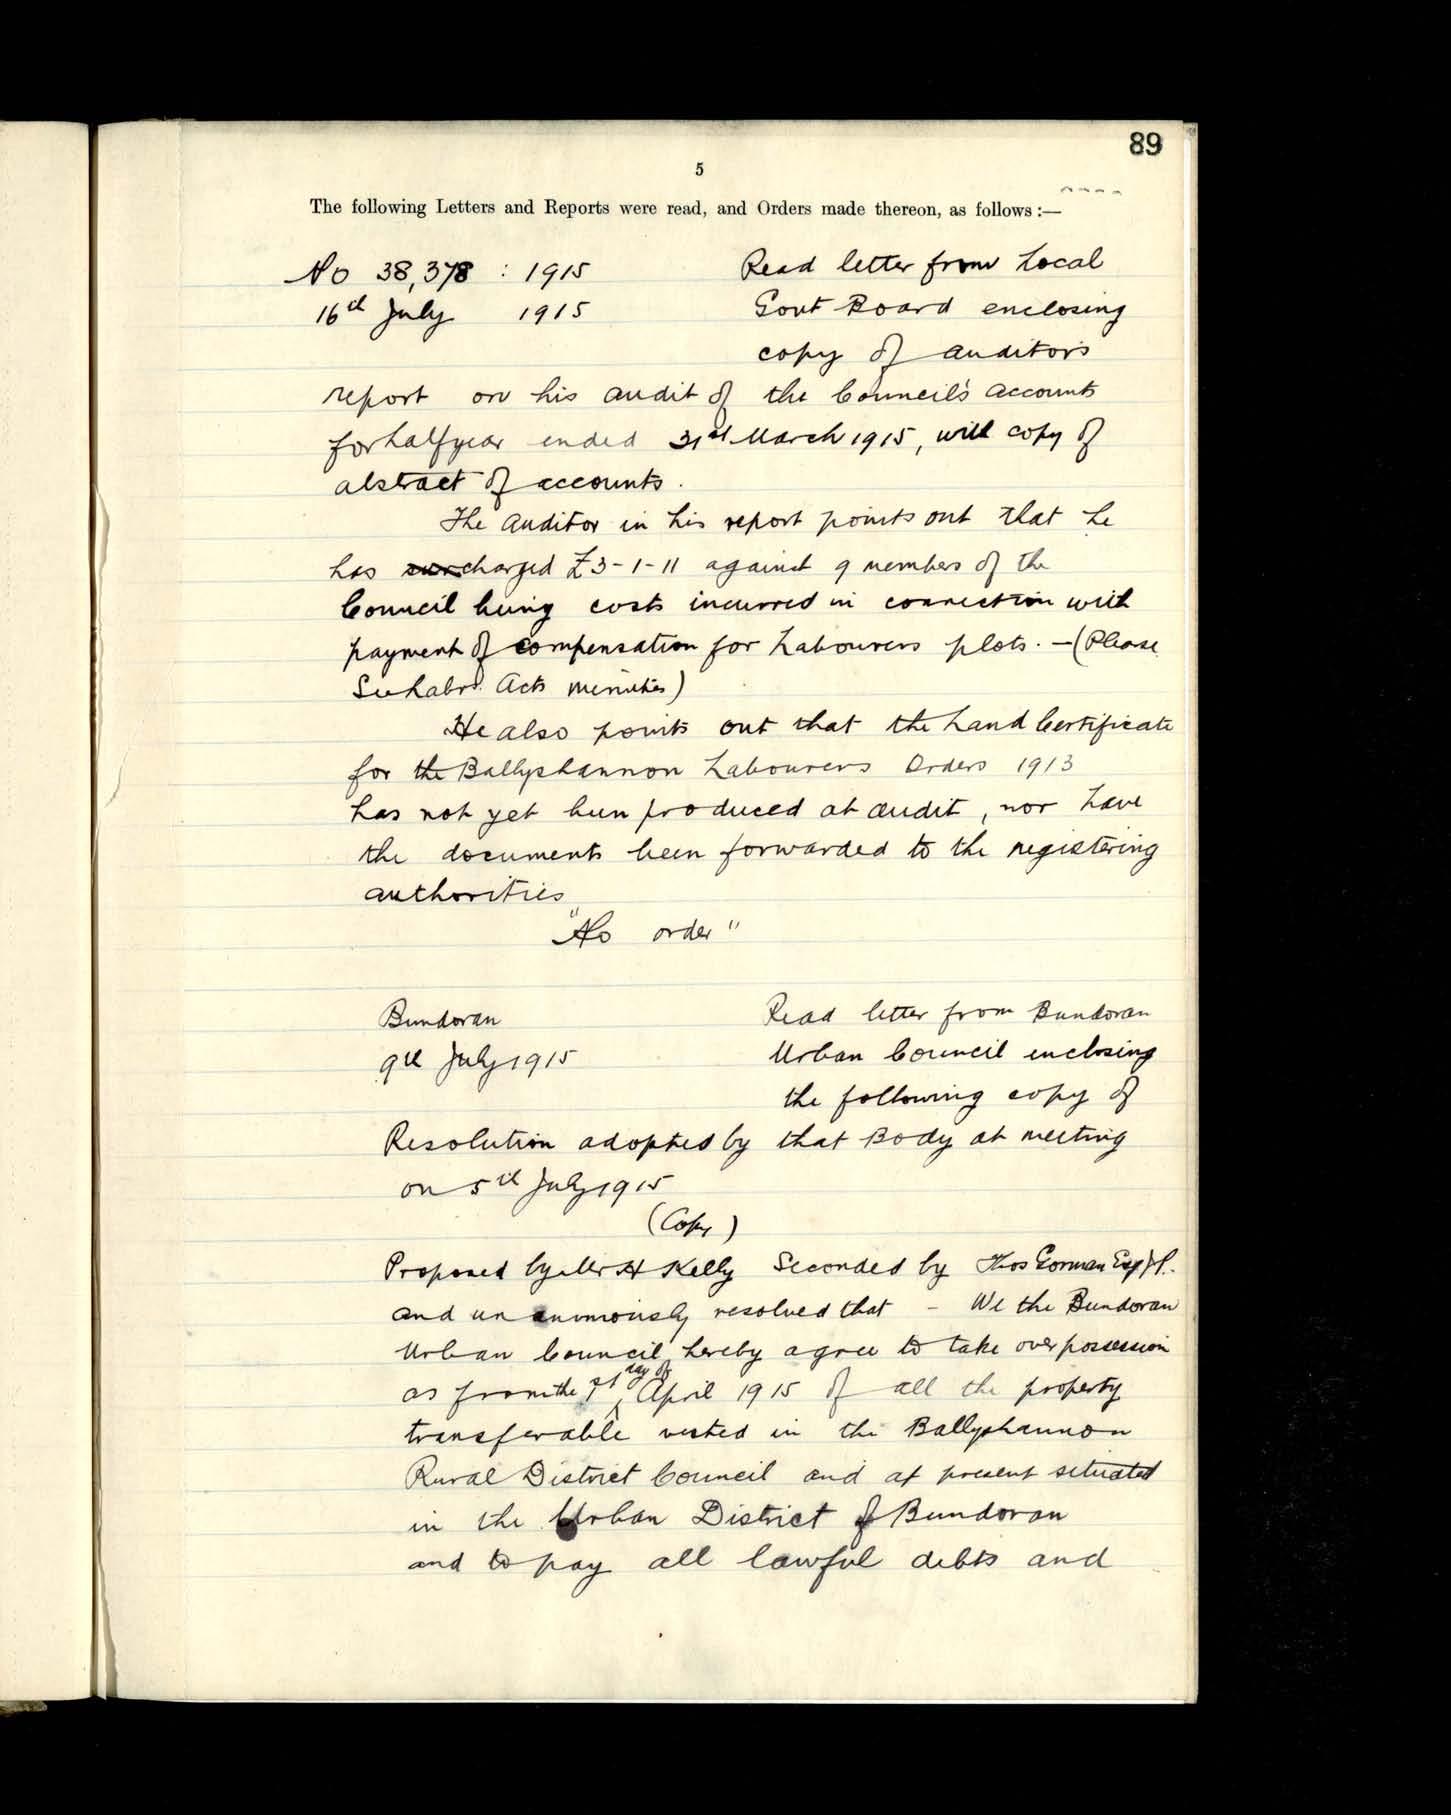 89
5
The following Letters and Reports were read, and Orders made thereon, as follows :—
No 38,378 : 1915 Read letter from Local
16th July 1915 Govt Board enclosing
copy of auditor's
report on his audit of the Council's accounts
for halfyear ended 31st March 1915, with copy of
abstract of accounts.
The auditor in his report points out that he
has surcharged £3-1-11 against 9 members of the
Council being costs incurred in connection with
payment of compensation for Labourers plots. - (Please
See Labrs Acts minutes)
He also points out that the Land Certificate
for the Ballyshannon Labourers Orders 1913
has not yet been produced at audit, nor have
the documents been forwarded to the registering
authorities
"No order"
Bundoran Read letter from Bundoran
9th July 1915 Urban Council enclosing
the following copy of
Resolution adopted by that Body at meeting
on 5th July 1915
(Copy)
Proposed by Mr H Kelly Seconded by Thos Gorman Esq J.P.
and unanimously resolved that - We the Bundoran
Urban Council hereby agree to take over possession
as from the 1st day of April 1915 of all the property
transferable vested in the Ballyshannon
Rural District Council and at present situated
in the Urban District of Bundoran
and to pay all lawful debts and